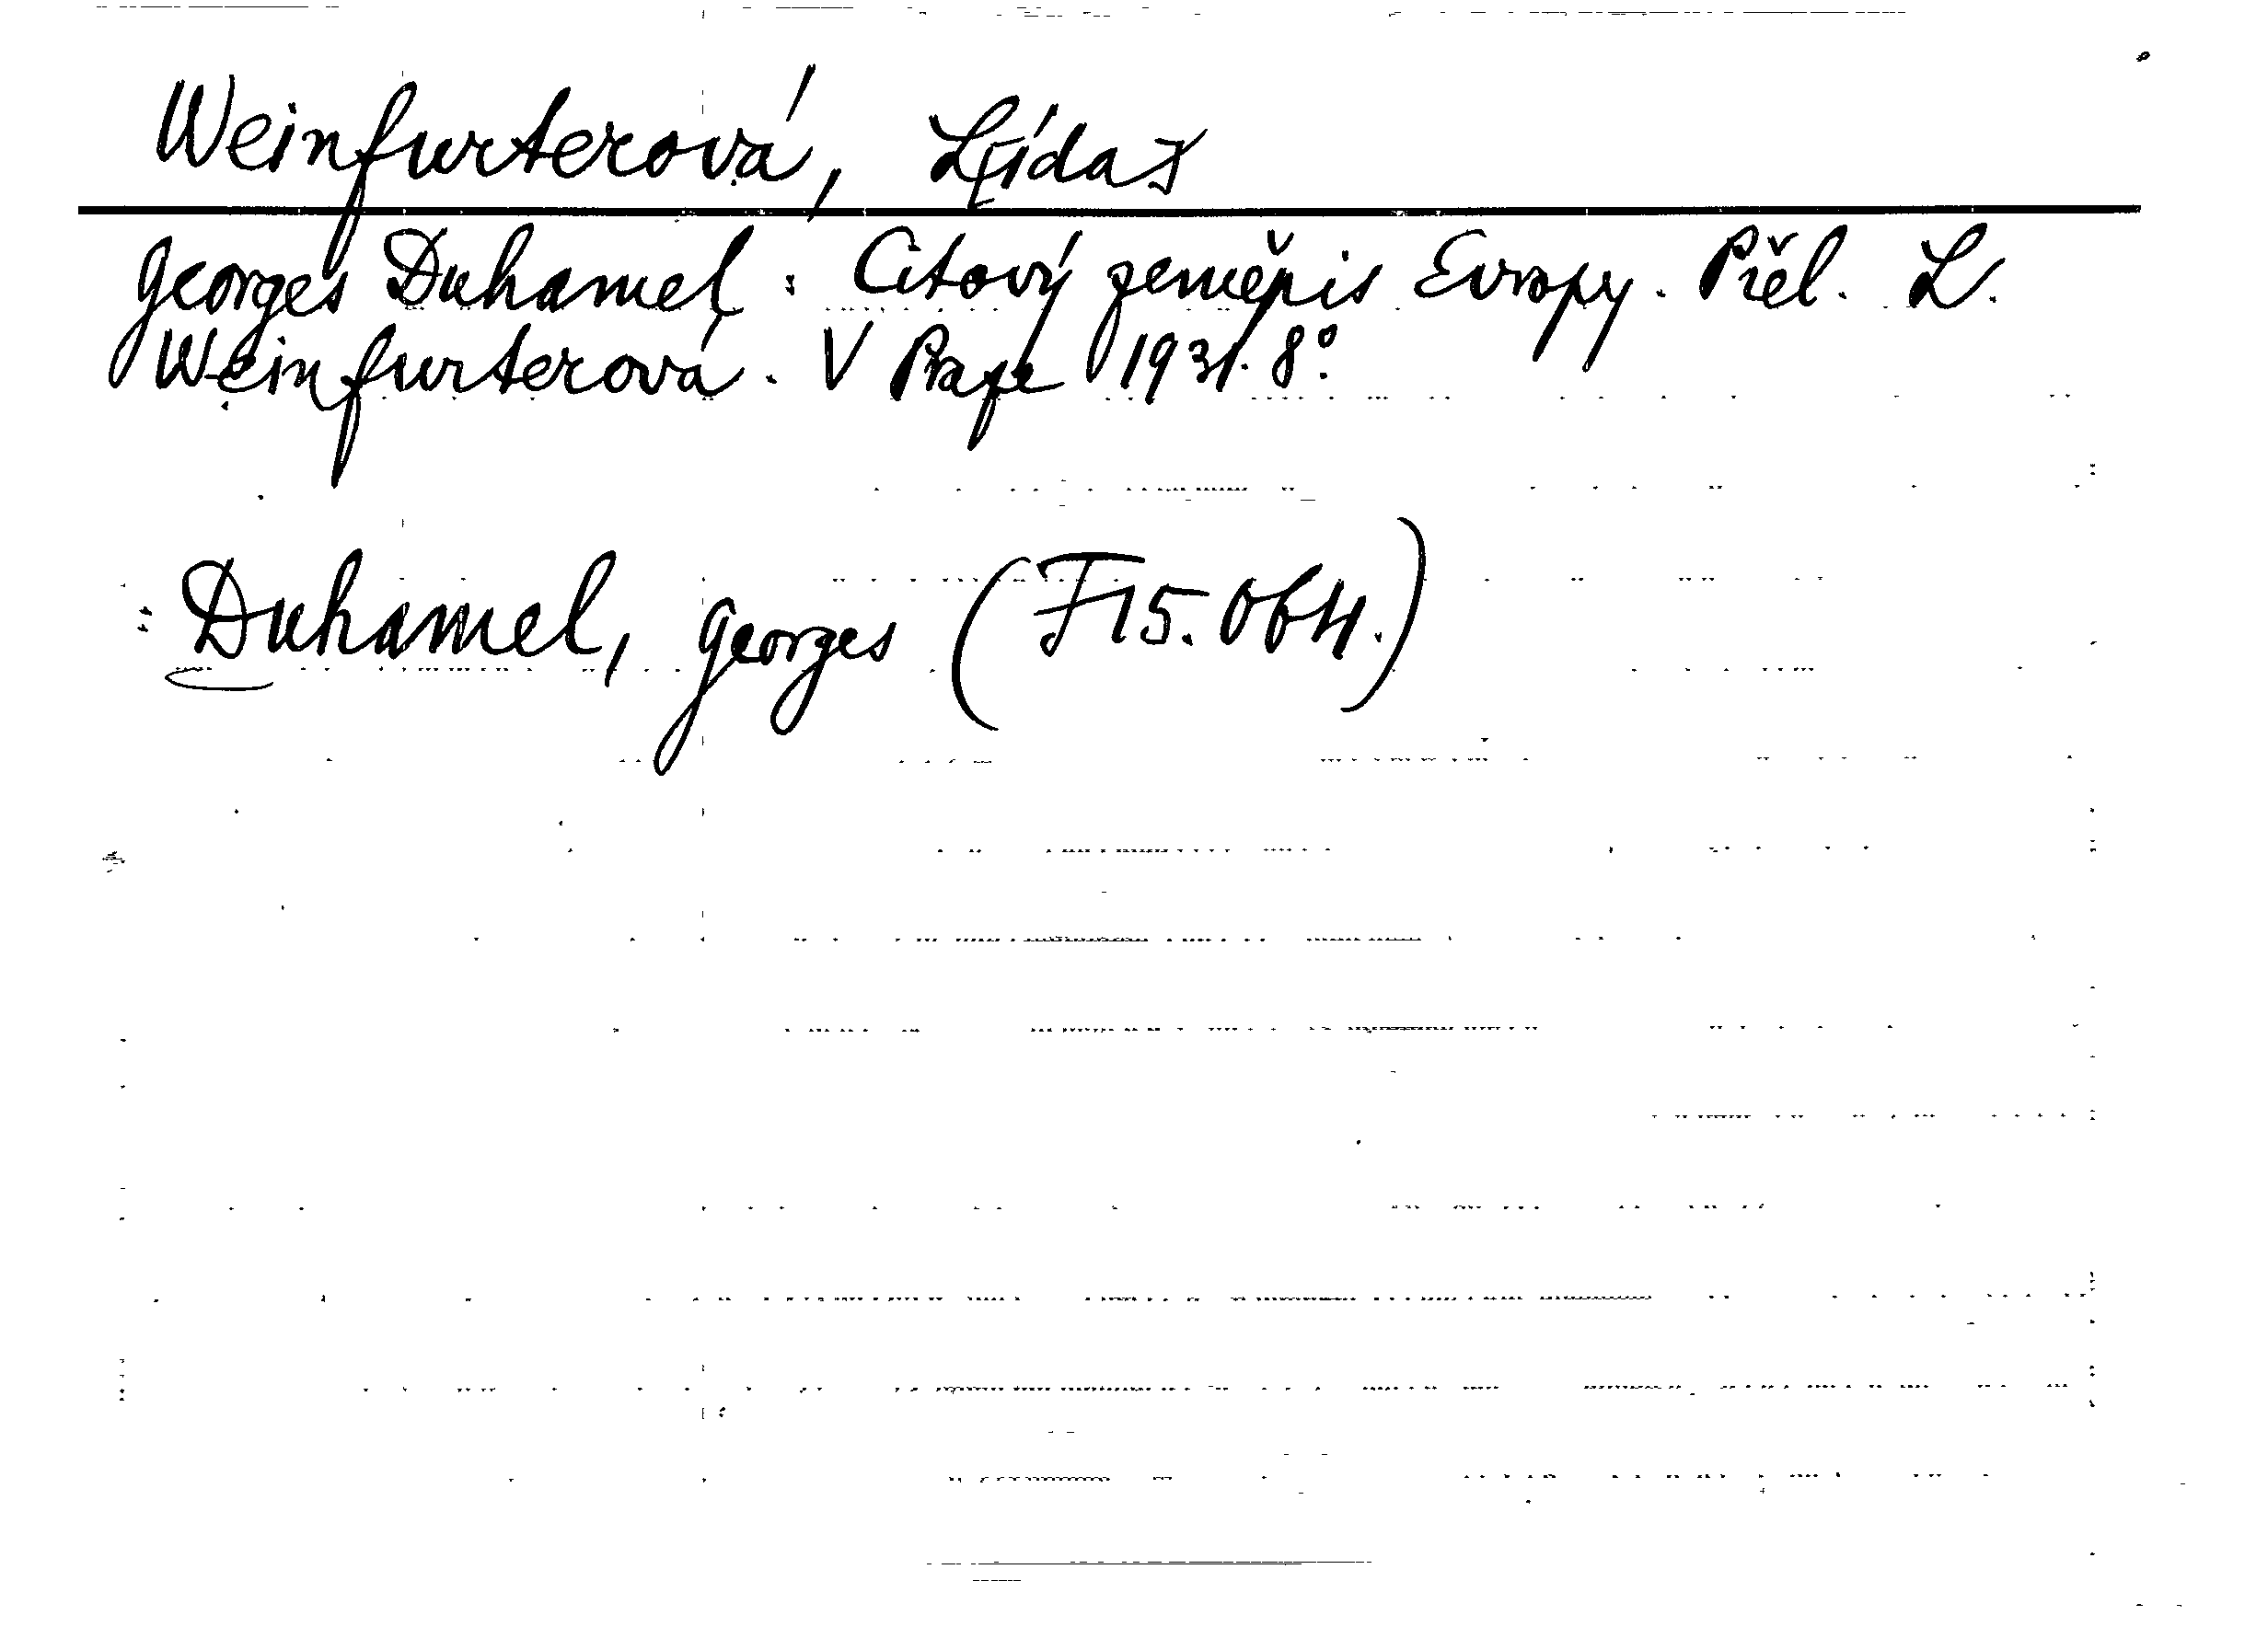 Weinfurterová, Lída
Georges Duhamel: Citový zeměpis Evropy. Přel. L.
Weinfurterová. V Praze 1931. 8°.
: Duhamel, Georges (F 15.064.)